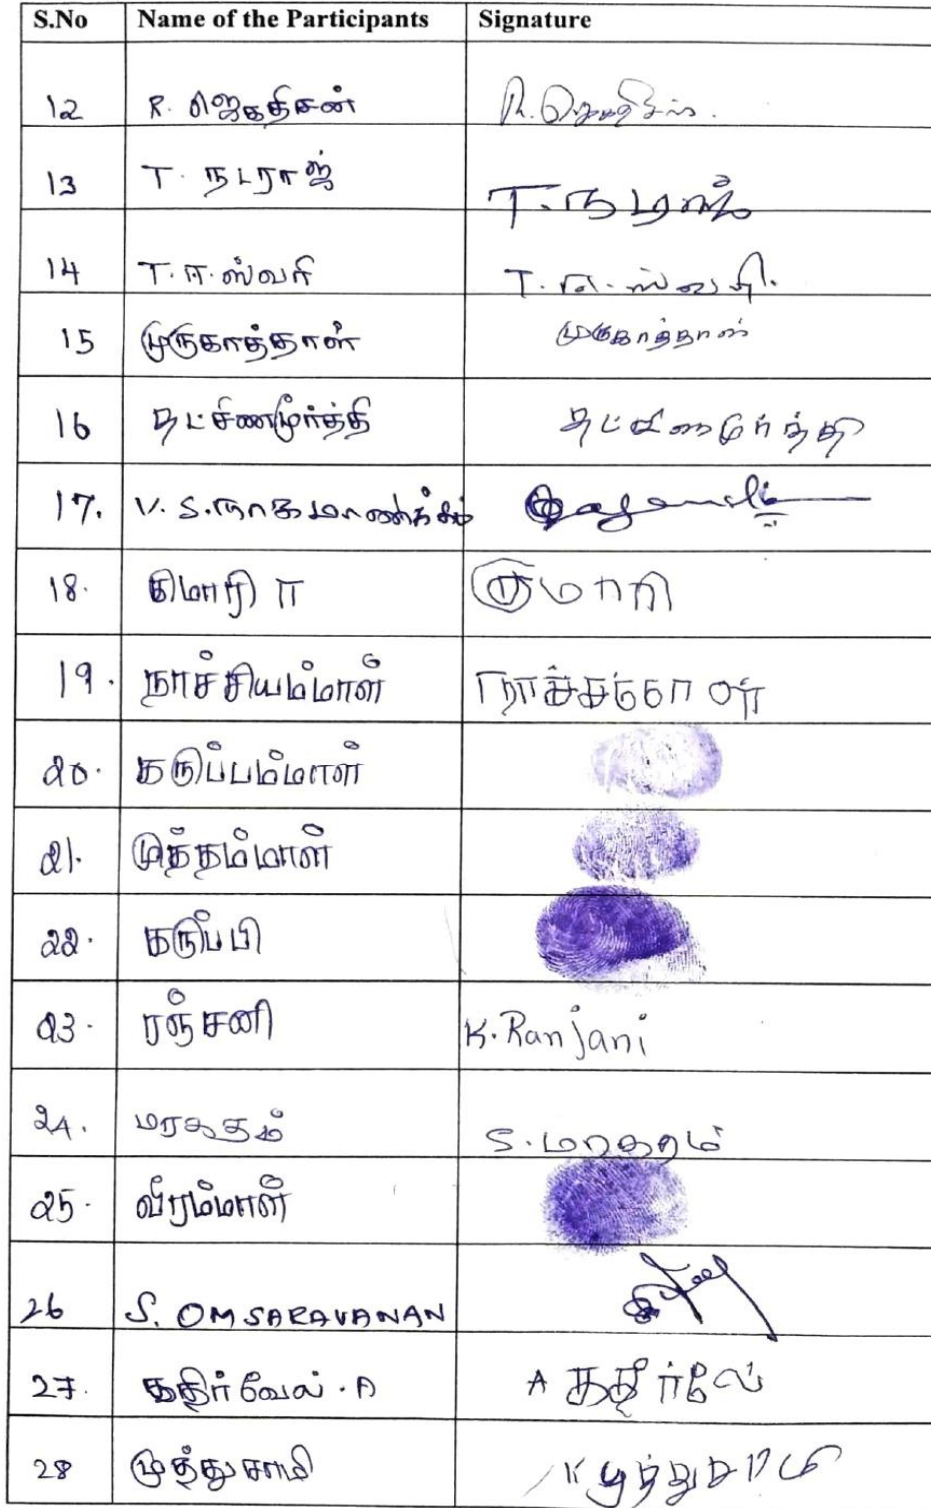 S.No Name of the Participants Signature
12 R. ஜெகதீசன்
13 T. நடராஜ் T. நடராஜ்
14 T. ஈ. ஸ்வரி T. ஈ. ஸ்வரி.
15 முருகாத்தாள் முருகாத்தாள்
16 தட்சிணமூர்த்தி தட்சிணமூர்த்தி
17. V. S. நாகமாணிக்கம்
18. குமாரி குமாரி
19. நாச்சியம்மாள்
20. கருப்பம்மாள்
21. முத்தம்மாள்
22. கருப்பி
23. ரஞ்சனி K. Ranjani
24. மரகதம் S. மரகதம்
25. வீரம்மாள்
26 S. OMSARAVANAN
27. கதிர்வேல். A A கதிர்வேல்
28 முத்துசாமி